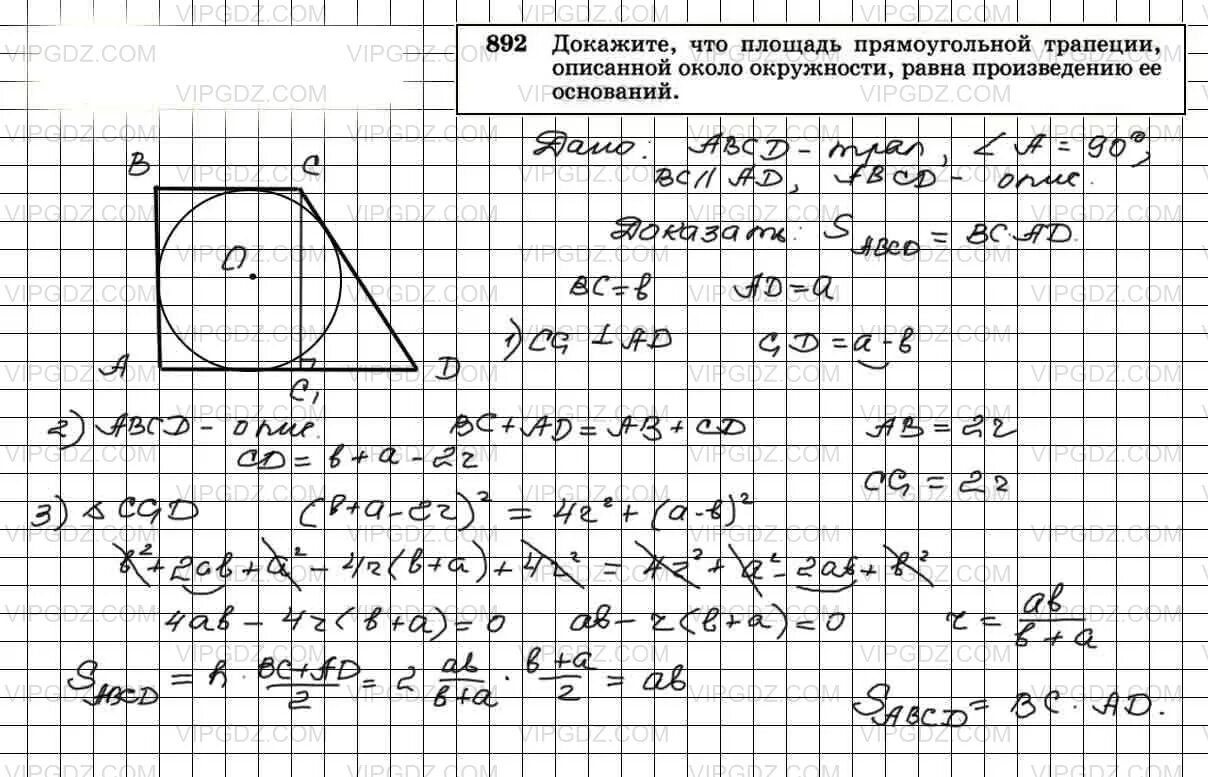 892 Докажите, что площадь прямоугольной трапеции,
описанной около окружности, равна произведению ее
оснований.
Дано: ABCD - трап, ∠A = 90°,
BC || AD, ABCD - опис.
Доказать: S_ABCD = BC·AD.
BC = b AD = a
1) CC₁ ⊥ AD C₁D = a - b
B C
O
A D
C₁
2) ABCD - опис. BC + AD = AB + CD AB = 2r
CD = b + a - 2r CC₁ = 2r
3) △CC₁D (b+a-2r)² = 4r² + (a-b)²
b² + 2ab + a² - 4r(b+a) + 4r² = 4r² + a² - 2ab + b²
4ab - 4r(b+a) = 0 ab - r(b+a) = 0 r = ab/(b+a)
S_ABCD = h · (BC+AD)/2 = 2 ab/(b+a) · (b+a)/2 = ab
S_ABCD = BC·AD.
VIPGDZ.COM